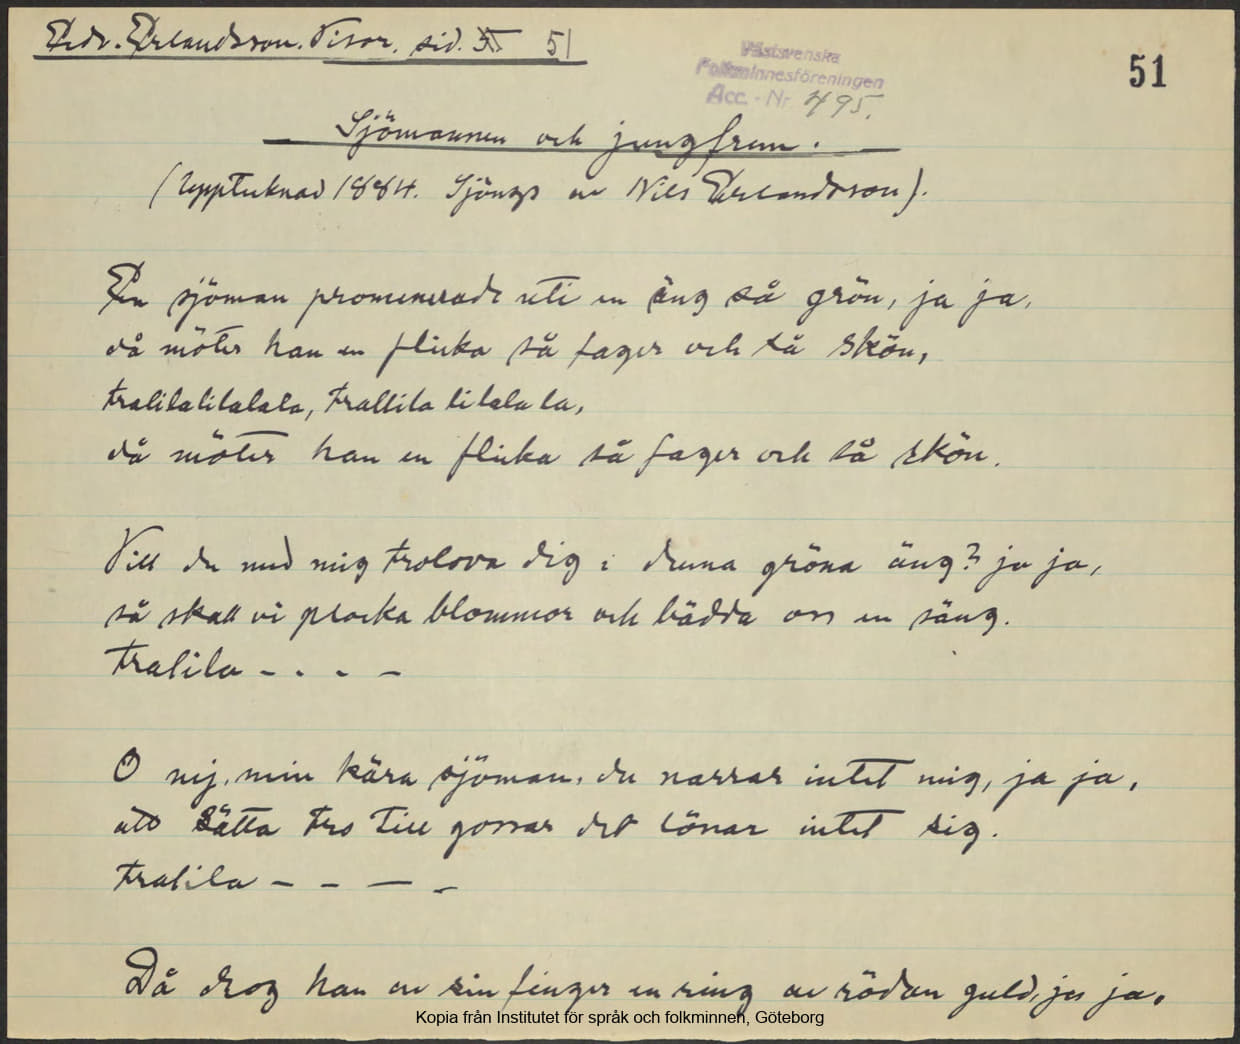 Edv. Erlandsson. Visor. sid. 51
Västsvenska
Folkminnesföreningen
Acc. - Nr. 495.
51
Sjömannen och jungfrun.
(Upptecknad 1884. Sjöngs av Nils Erlandsson).
En sjöman promenerade uti en äng så grön, ja ja,
då möter han en flicka så fager och så skön,
tralilalilalala, trallila lilala la,
då möter han en flicka så fager och så skön.
Vill du med mig trolova dig i denna gröna äng? ja ja,
så skall vi plocka blommor och bädda oss en säng.
Tralila - - - -
O nej, min kära sjöman, du narrar intet mig, ja ja,
att sätta tro till gossar det lönar intet sig.
Tralila - - - -
Då drog han av sin finger en ring av rödan guld, ja ja,
Kopia från Institutet för språk och folkminnen, Göteborg